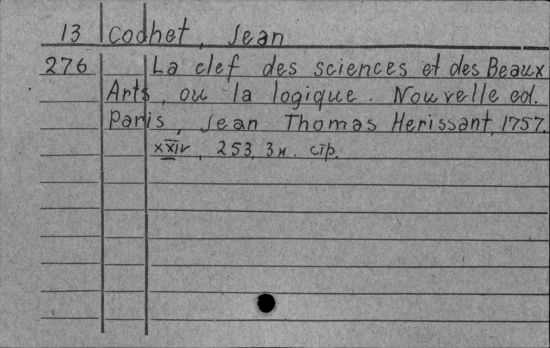 13 Cochet, Jean
276 La clef des sciences et des Beaux
Arts, ou la logique. Nouvelle ed.
Paris, Jean Thomas Herissant, 1757.
XXIV, 253, 3н. стр.